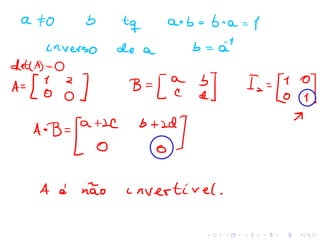 a≠0 b tq a•b = b•a = 1
inverso de a b = a⁻¹
det(A)=0
A = [1 2 0 0] B = [a b c d] I₂ = [1 0 0 1]
A•B = [a+2c b+2d 0 0]
A é não invertível.